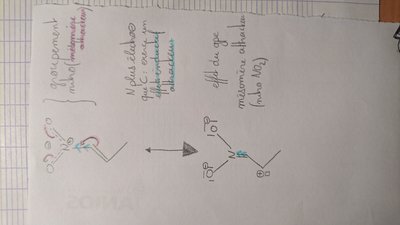 groupement
nitro (mésomère
attracteur)
N plus électro⊖
que C : exerce un
effet inductif
attracteur
effet du gpe
mésomère attracteur
(nitro NO2)
O
N
⊕
O
⊖
|O|
⊖
N
|O|
⊖
⊕